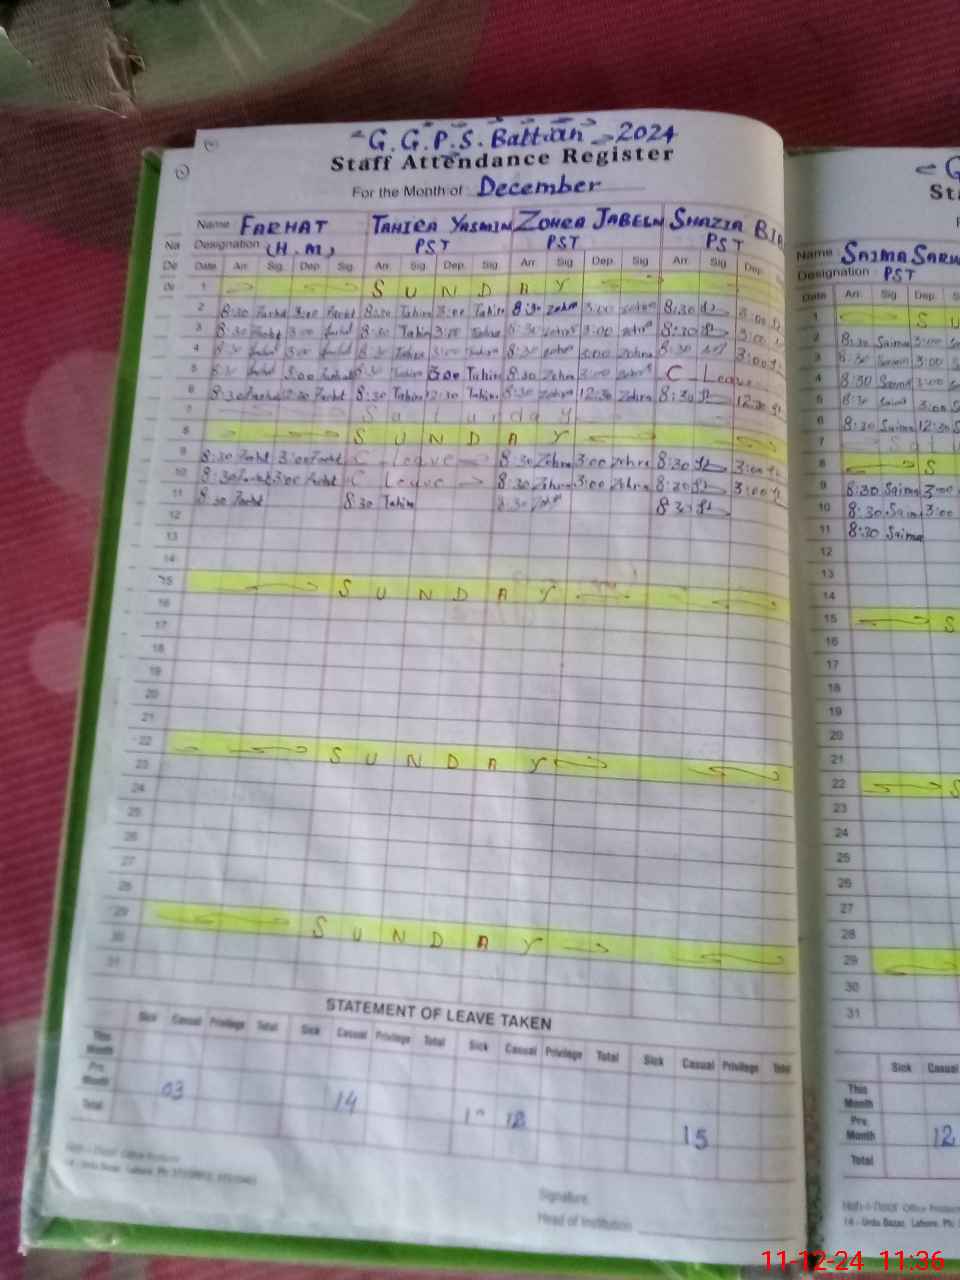 G.G.P.S. Battian 2024
Staff Attendance Register
For the Month of : December
Name FARHAT TAHIRA YASMIN ZOHRA JABEEN SHAZIA
Designation (H.M) PST PST PST
Date Arr. Sig. Dep. Sig. Arr. Sig. Dep. Sig. Arr. Sig. Dep. Sig. Arr. Sig. Dep.
1 S U N D A Y
2 8:30 Farht 3:00 Farht 8:30 Tahir 3:00 Tahir 8:30 Zohra 3:00 Zohra 8:30 3:00
3 8:30 Farht 3:00 Farht 8:30 Tahir 3:00 Tahira 8:30 Zohra 3:00 Zohra 8:30 3:00
4 8:30 3:00 8:30 Tahira 3:00 Tahira 8:30 Zohra 3:00 Zohra 8:30 3:00
5 8:30 3:00 8:30 Tahira 3:00 Tahir 8:30 Zohra 3:00 Zohra C - Leave
6 8:30 Farht 12:30 Farht 8:30 Tahir 12:30 Tahir 8:30 Zohra 12:30 Zohra 8:30 12:30
7 Saturday
8 S U N D A Y
9 8:30 Farht 3:00 Farht C - Leave 8:30 Zohra 3:00 Zohra 8:30 3:00
10 8:30 Farht 3:00 Farht C Leave 8:30 Zohra 3:00 Zohra 8:30 3:00
11 8:30 Farht 8:30 Tahir 8:30 Zohr 8:30
12
13
14
15 S U N D A Y
16
17
18
19
20
21
22 S U N D A Y
23
24
25
26
27
28
29 S U N D A Y
30
31
STATEMENT OF LEAVE TAKEN
Sick Casual Privilege Total Sick Casual Privilege Total Sick Casual Privilege Total Sick Casual Privilege Total
This Month
Pre. Month 03 14 18 15
Total
Signature
Head of Institution
Na
De
G
St
Name SAIMA
Designation PST
Date Arr. Sig. Dep. S
1 S U
2 8:30 Saima 3:00
3 8:30 Saima 3:00
4 8:30 Saima 3:00
5 8:30 Saima 3:00
6 8:30 Saima 12:30
7
8 S
9 8:30 Saima 3:00
10 8:30 Saima 3:00
11 8:30 Saima
12
13
14
15 S
16
17
18
19
20
21
22 S
23
24
25
26
27
28
29
30
31
Sick Casual
This Month
Pre. Month 12
Total
14 - Urdu Bazar, Lahore. Ph:
11-12-24 11:36